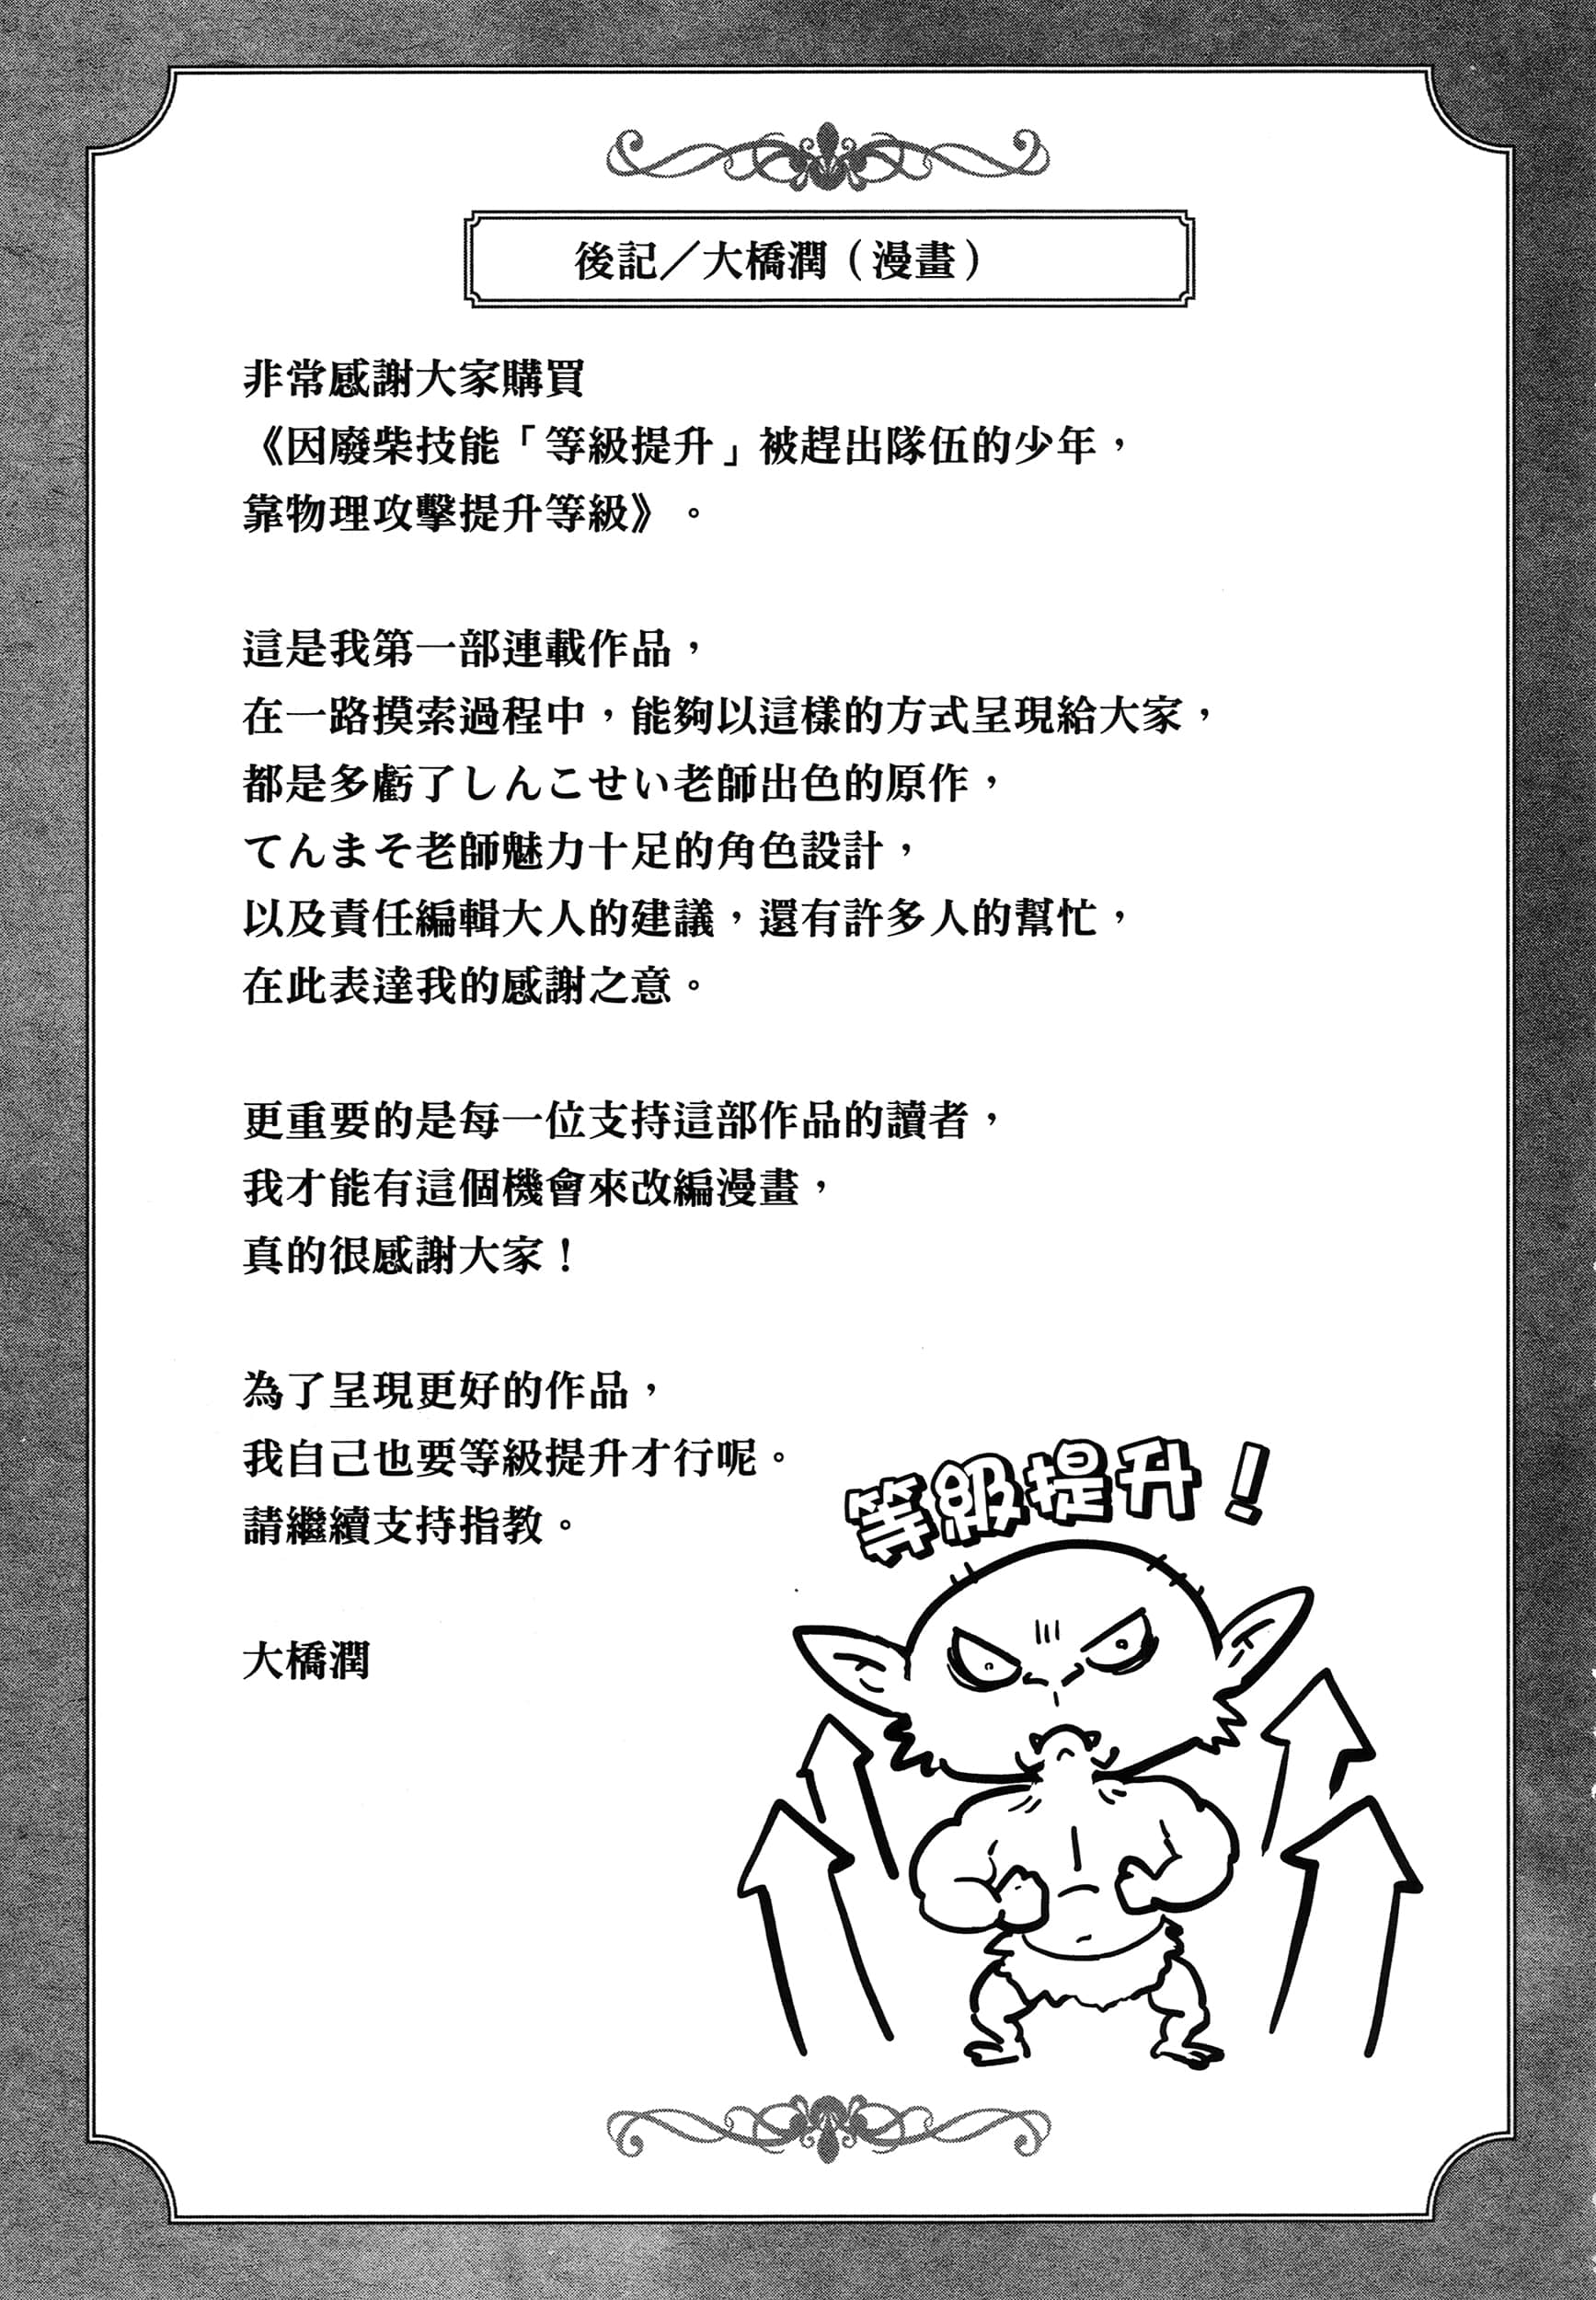 後記／大橋潤（漫畫）
非常感謝大家購買
《因廢柴技能「等級提升」被趕出隊伍的少年，
靠物理攻擊提升等級》。
這是我第一部連載作品，
在一路摸索過程中，能夠以這樣的方式呈現給大家，
都是多虧了しんこせい老師出色的原作，
てんまそ老師魅力十足的角色設計，
以及責任編輯大人的建議，還有許多人的幫忙，
在此表達我的感謝之意。
更重要的是每一位支持這部作品的讀者，
我才能有這個機會來改編漫畫，
真的很感謝大家！
為了呈現更好的作品，
我自己也要等級提升才行呢。
請繼續支持指教。
大橋潤
等級提升！